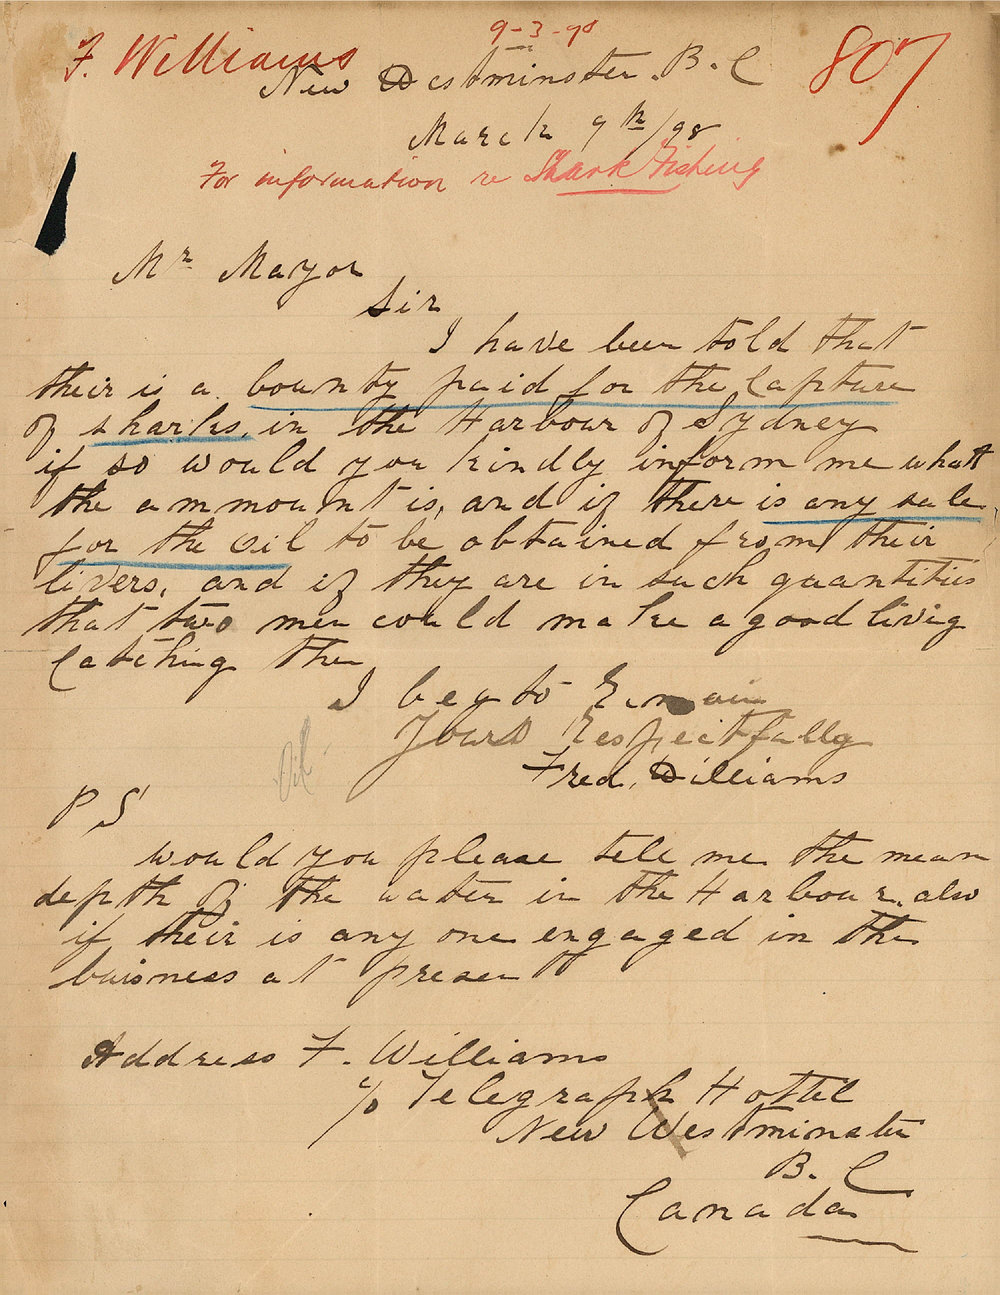 9-3-98
F. Williams
807
New Westminster. B. C
March 9th/98
For information re Shark Fishing
Mr Mayor
Sir
I have been told that
their is a bounty paid for the Capture
of sharks, in the Harbour of Sydney
if so would you kindly inform me whatt
the ammount is, and if there is any sale
for the oil to be obtained from their
livers, and if they are in such quantities
that two men could make a good livig
Catching the
I beg to Remain
Yours Respectfully
Fred. Williams
Oil
P S
would you please tell me the mean
depth of the water in the Harbour, also
if their is any one engaged in the
buisness at present
Address F. Williams
c/o Telegraph Hottel
New Westminster
B. C
Canada